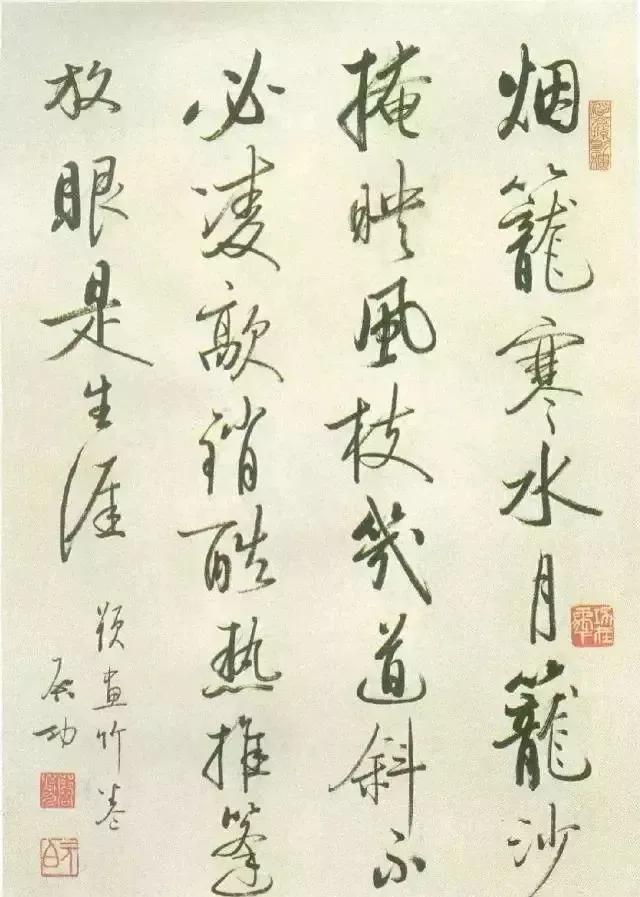 烟籠寒水月籠沙
掩映風枝幾道斜不
必凌歊銷酷热推篷
放眼是生涯
題畫竹卷
启功